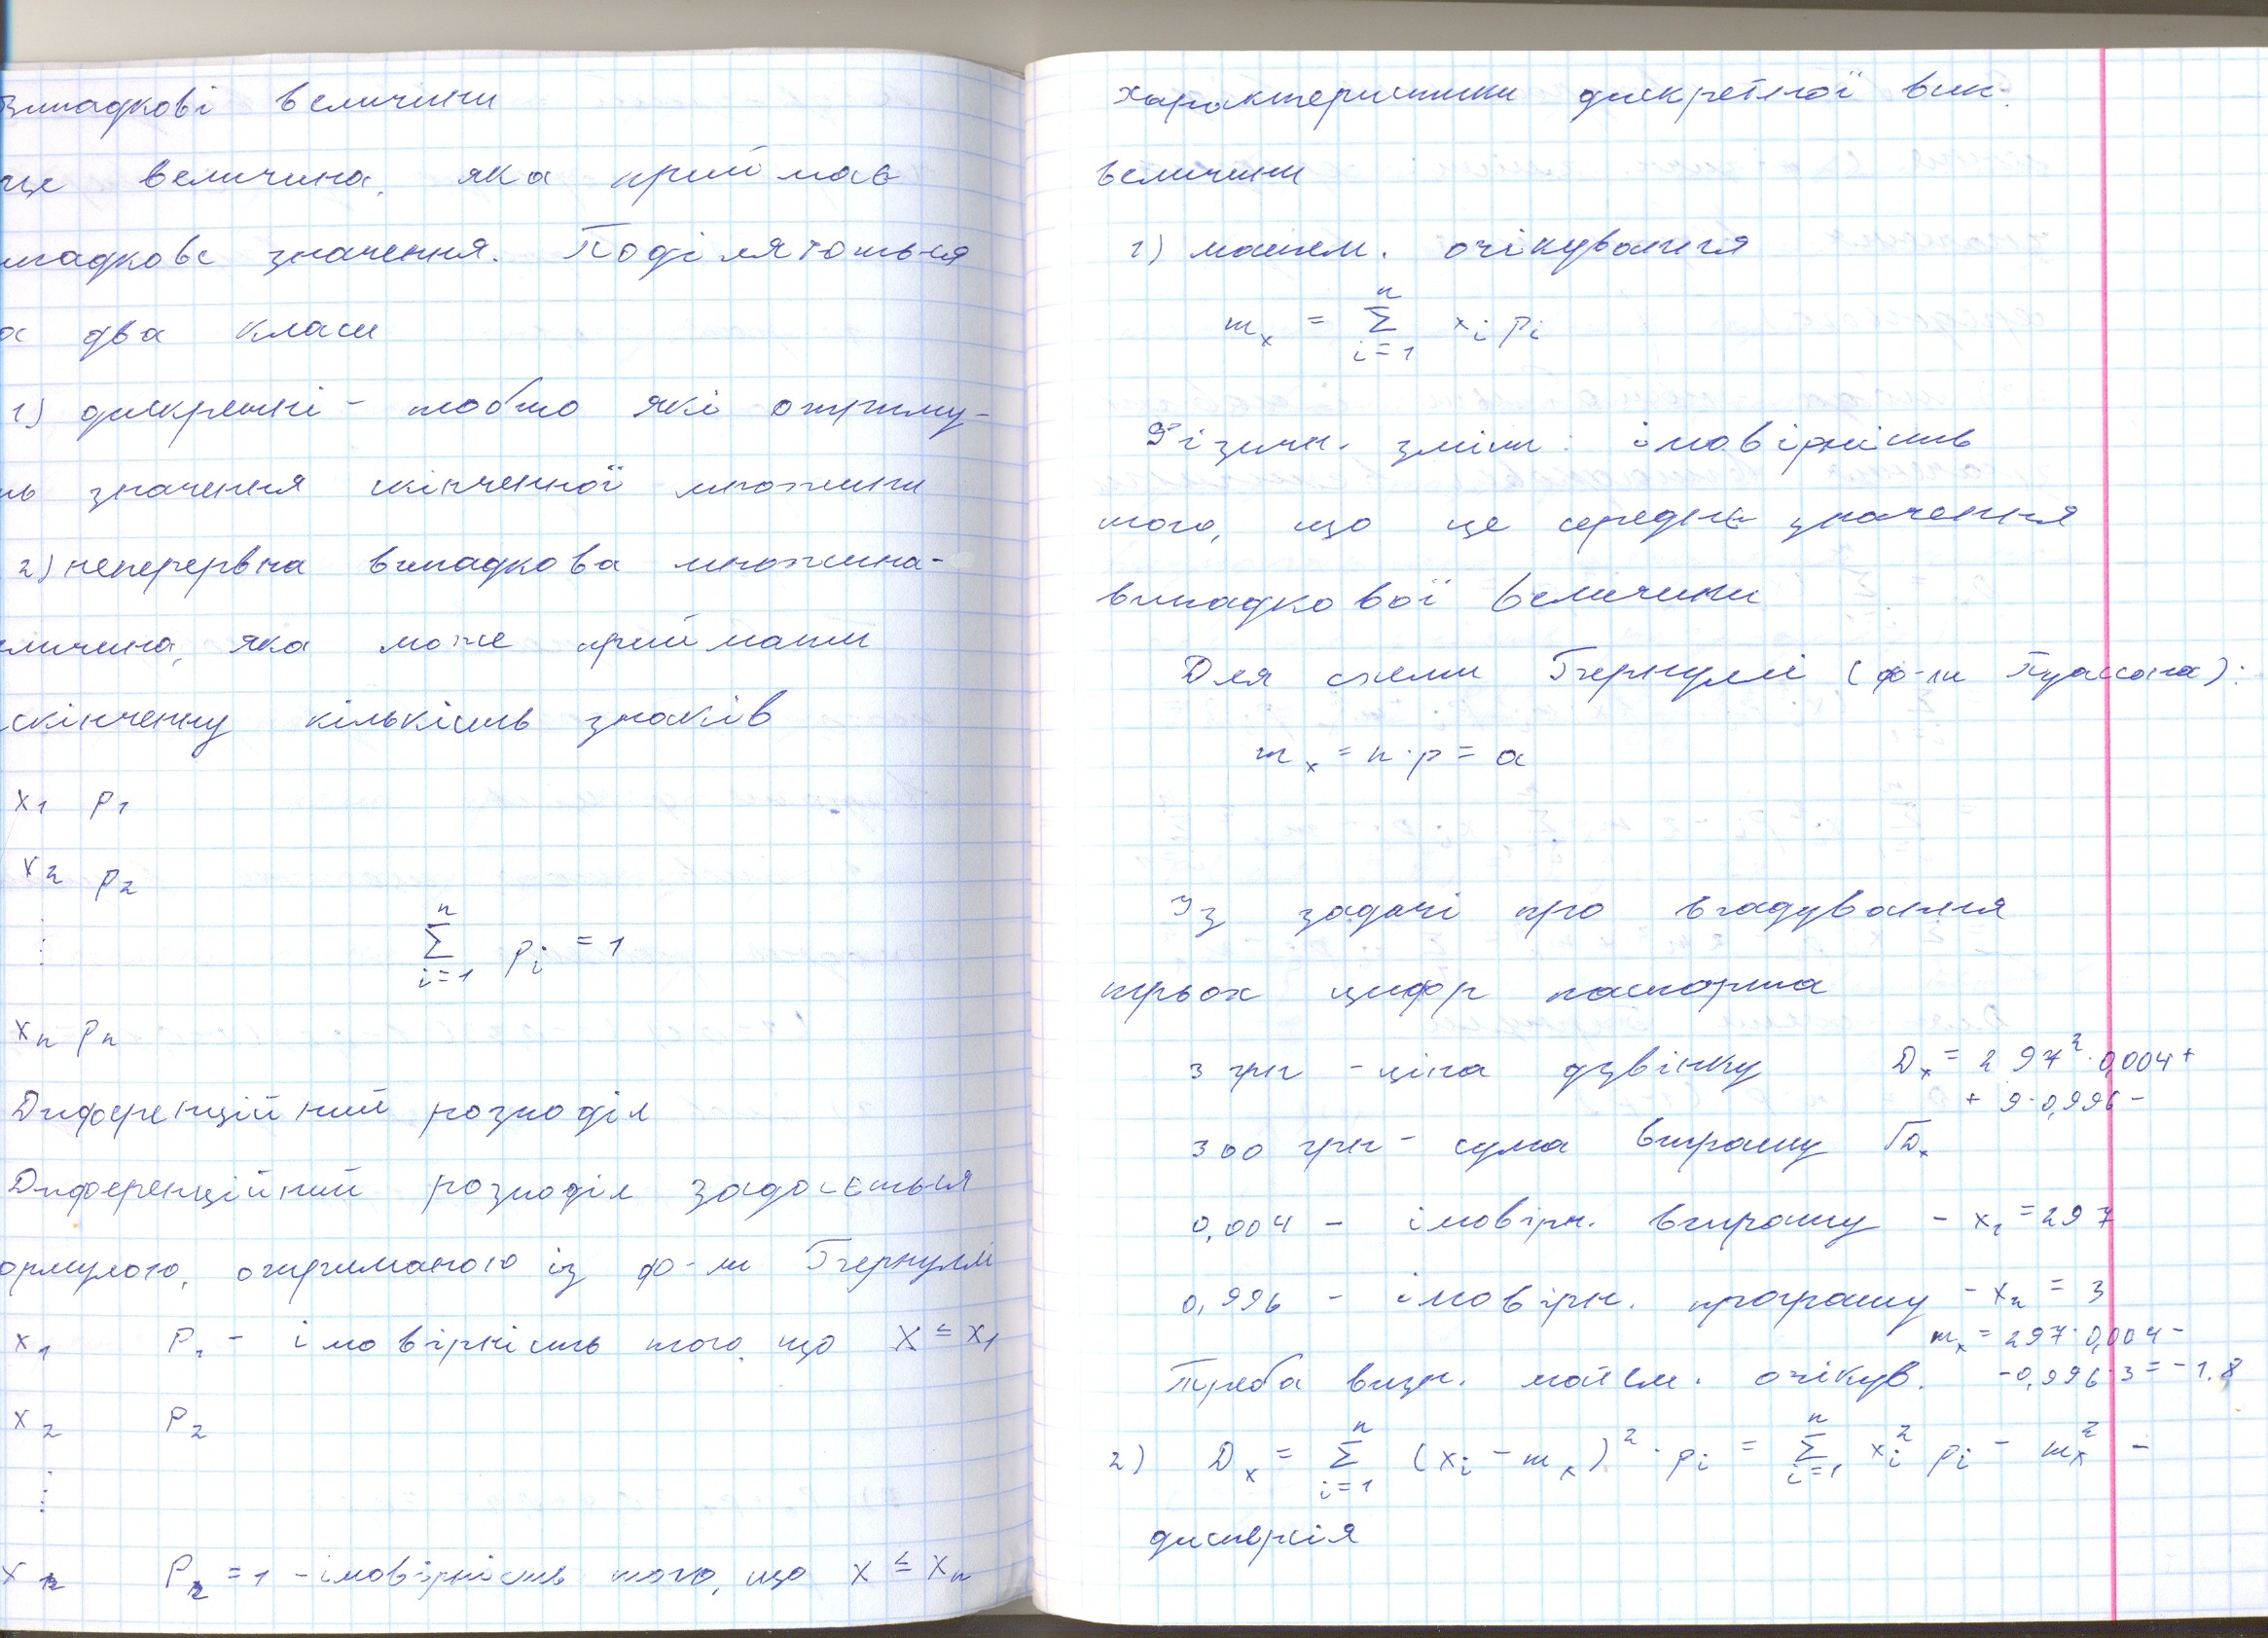 Випадкові величини
це величина, яка приймає
падкове значення. Поділяються
а два класи
1) дискретні - тобто які отриму-
ть значення скінченної множини
2) неперервна випадкова множина-
личина, яка може приймати
скінченну кількість знаків
x₁ p₁
x₂ p₂
⋮
∑ᵢ₌₁ⁿ pᵢ = 1
xₙ pₙ
Диференційний розподіл
Диференційний розподіл задається
ормулою, отриманою із ф-ли Бернуллі
x₁ P₁ - імовірність того, що X ≤ x₁
x₂ P₂
⋮
xₙ Pₙ = 1 - імовірність того, що X ≤ xₙ
Характеристики дискретної вип.
величини
1) матем. очікування
mₓ = ∑ᵢ₌₁ⁿ xᵢ pᵢ
Фізичн. зміст: імовірність
того, що це середнє значення
випадкової величини
Для схеми Бернуллі (ф-ли Пуассона):
mₓ = n·p = a
Із задачі про вгадування
трьох цифр паспорта
3 грн - ціна дзвінку Dₓ = 297²·0,004 +
+ 9·0,996 -
300 грн - сума виграшу √Dₓ
0,004 - імовірн. виграшу - x₁ = 297
0,996 - імовірн. програшу - x₂ = 3
mₓ = 297·0,004 -
Треба визн. матем. очікув. - 0,996·3 = -1.8
2) Dₓ = ∑ᵢ₌₁ⁿ (xᵢ - mₓ)²·pᵢ = ∑ᵢ₌₁ⁿ xᵢ² pᵢ - mₓ² -
дисперсія